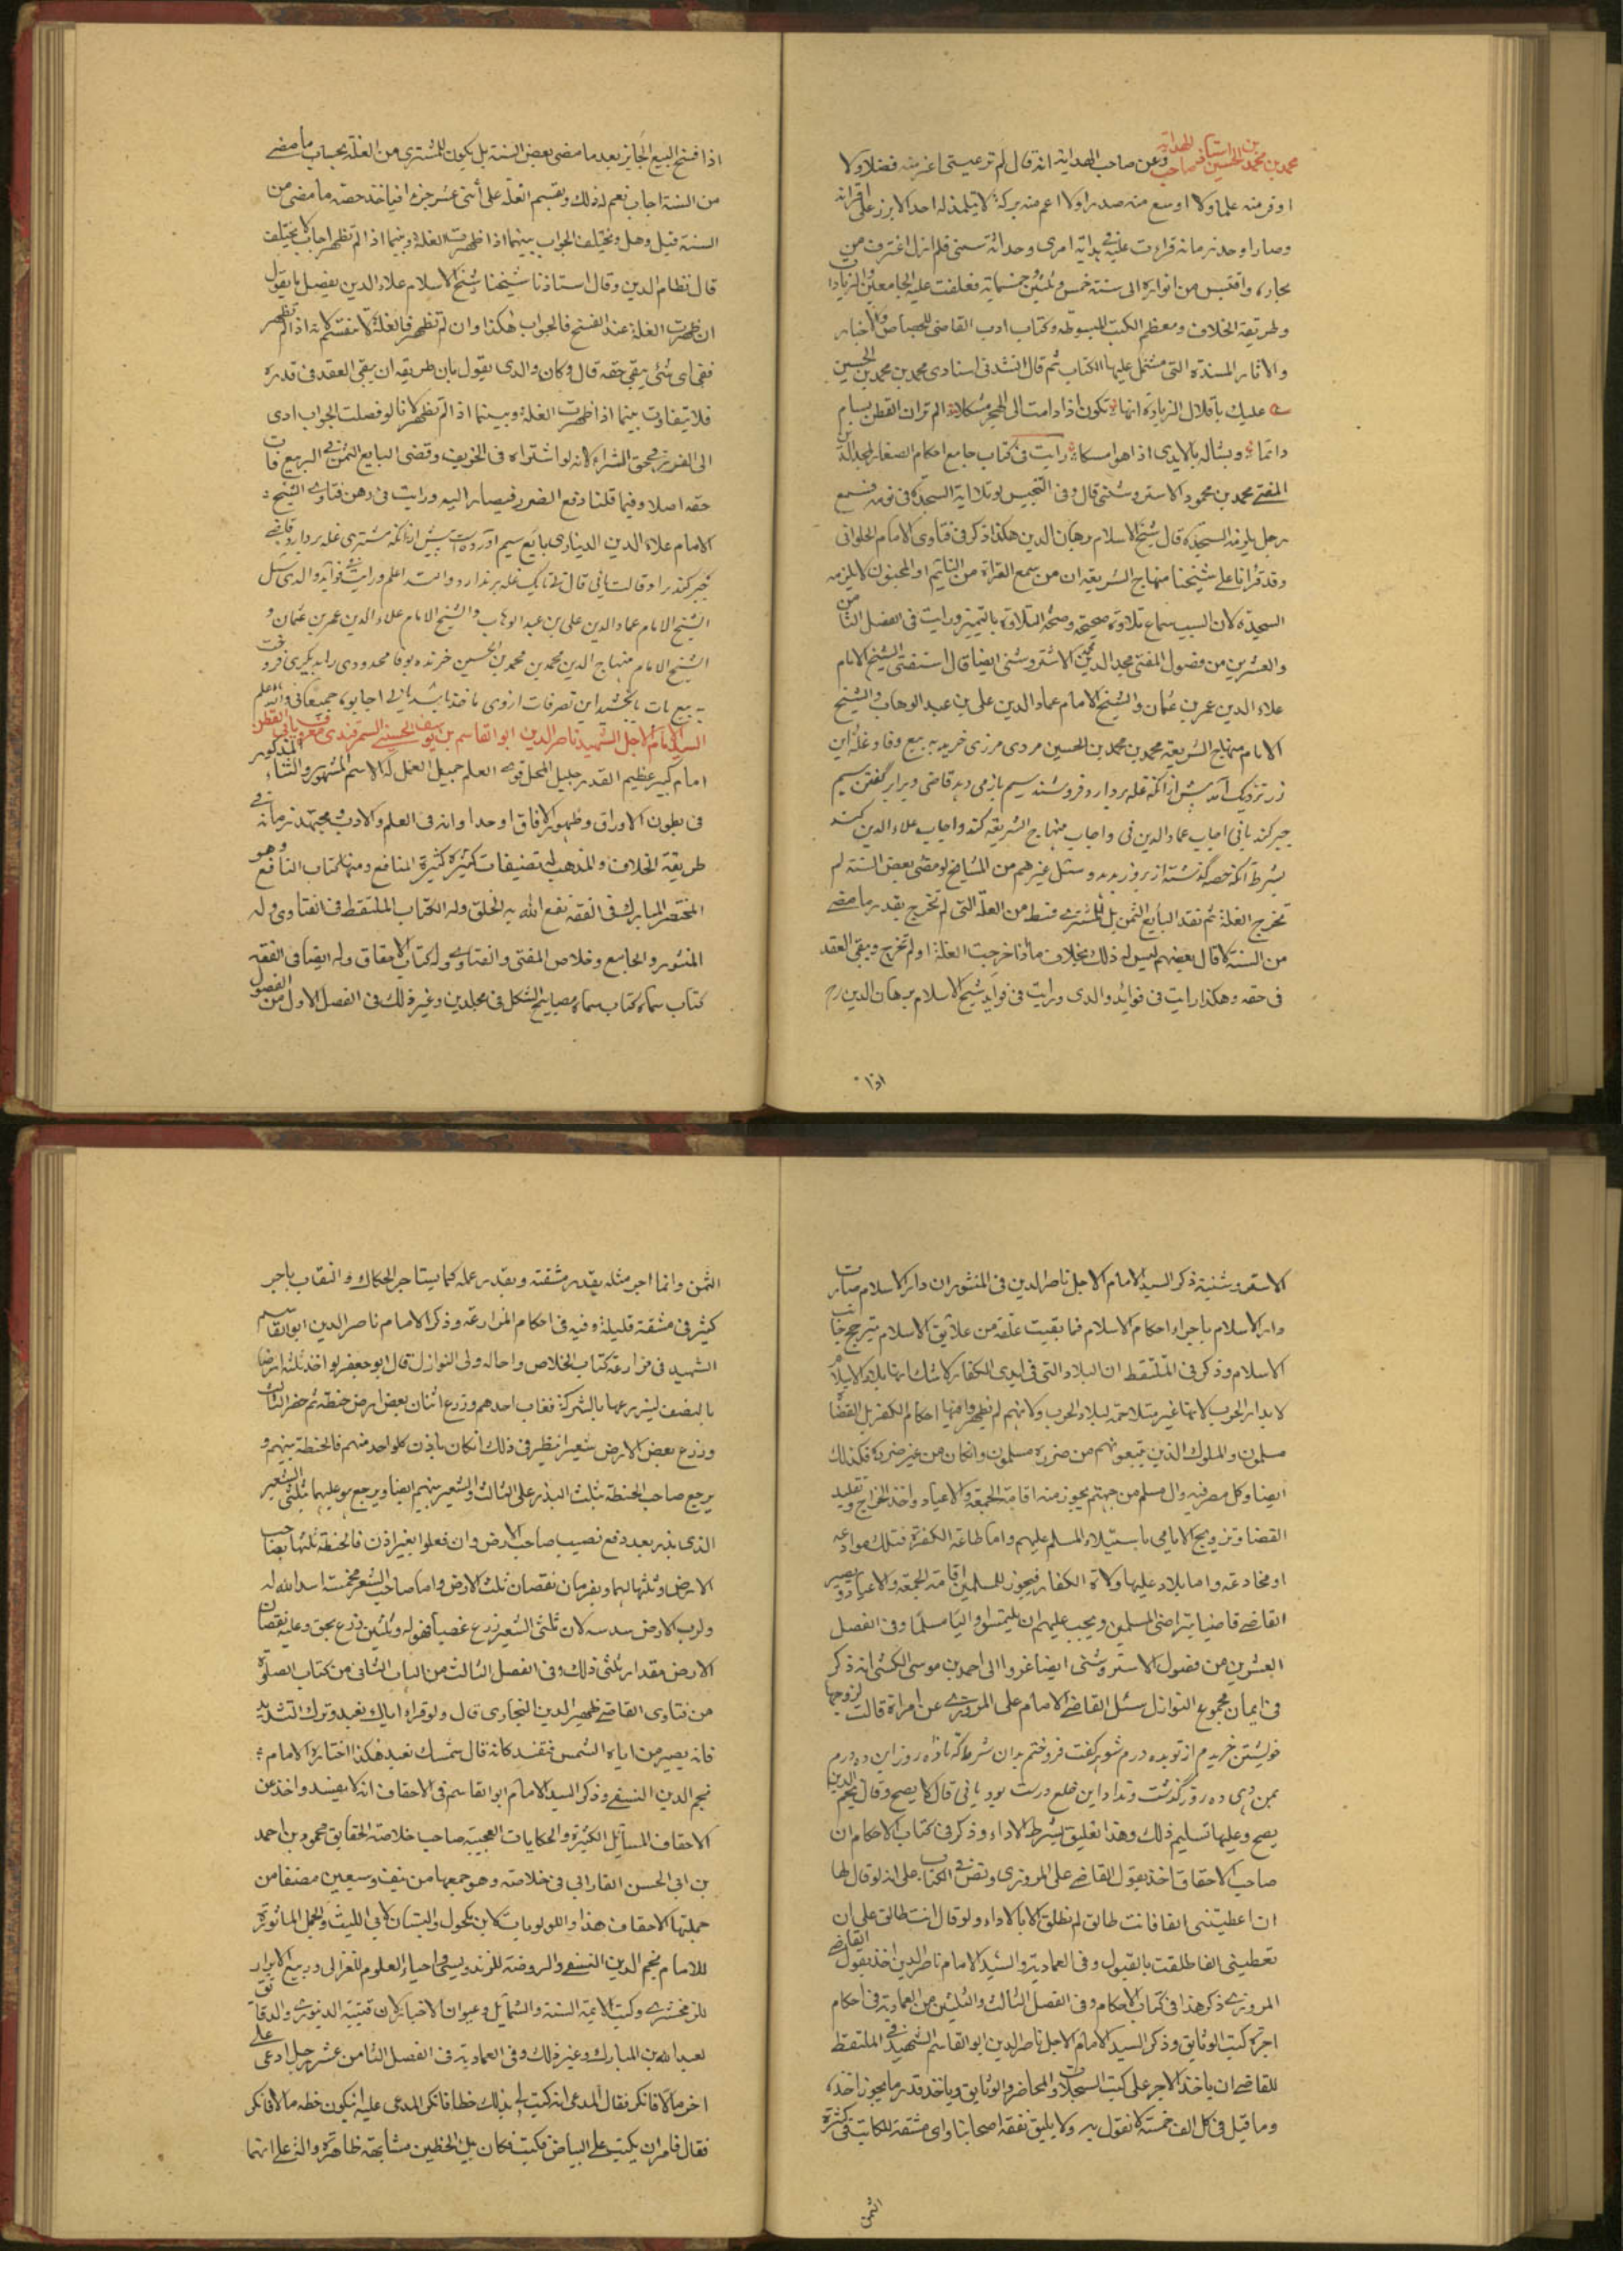 محمد بن محمد بن الحسين استاذ صاحب الهداية وعن صاحب الهداية انه قال لم تر عينى اغزر منه فضلا ولا
اوفر منه علما ولا اوسع منه صدرا ولا اعم منه بركة لا يتلمذ له احد الا برز على اقرانه
وصار اوحد زمانه قراءت عليه فى بداية امرى وحداثة سنى فلم ازل اغترف من
بحاره واقتبس من انواره الى سنة خمس وثلثين وخمسمائة فعلقت عليه الجامعين والزيادات
وطريقة الخلاف ومعظم الكتب المبسوطة وكتاب ادب القاضى للخصاص والاخبار
والاثار المسندة التى مشتمل عليها الكتاب ثم قال انشدنى استادى محمد بن محمد بن الحسين
عليك باقلال الزيارة انها تكون اذا دامت الى الهجر مسلكا الم تر ان القطر يسام
دائما ويسأل بالايدى اذا هو امسكا رايت فى كتاب جامع احكام الصغار لمجد الدين
المفتى محمد بن محمود الاستروشنى قال وفى التجنيس لو تلا اية السجدة فى نومه فسمع
رجل يلزمه السجدة قال شيخ الاسلام برهان الدين هكذا ذكر فى فتاوى الامام الحلوانى
وقد قرأنا على شيخنا منهاج الشريعة ان من سمع القراة من النائم او المجنون لا يلزمه
السجدة لان السبب سماع تلاوة صحيحة وصحة التلاوة بالتميز ورايت فى الفصل الثامن
والعشرين من فصول المفتى مجد الدين محمد الاستروشنى ايضا قال استفتى الشيخ الامام
علاء الدين عمر بن عثمان والشيخ الامام عماد الدين على بن عبد الوهاب والشيخ
الامام منهاج الشريعة محمد بن محمد بن الحسين مردى مرزى خريد به بيع وفا وغلة اين
زر نزديك آمد پيش ازانكه غله بردارد فروشنده سيم باز مى دهد قاضى ويرا بر گفتن سيم
جبر كند يا نى اجاب عماد الدين نى واجاب منهاج الشريعة كند واجاب علاء الدين كند
بشرط آنكه حصه گذشته از پرو زبدهد وسئل غيرهم من المشايخ لو مضى بعض السنة لم
تخرج الغلة ثم نقد البايع الثمن بل للمشترى قسط من الغلة التى لم تخرج بقدر ما مضى
من السنة كا قال بعضهم ليس له ذلك بخلاف ما اذا خرجت الغلة او لم تخرج ويبقى العقد
فى حقه وهكذا رايت فى فوائد والدى ورايت فى فوايد شيخ الاسلام برهان الدين رح
اذا
اذا فسخ البيع الجايز بعد ما مضى بعض السنة بل يكون للمشترى من الغلة بحساب ما مضى
من السنة اجاب نعم له ذلك وبقسم الغلة على اثنى عشر جزء افياخذ حصة ما مضى من
السنة قيل وهل ويختلف الجواب بينهما اذا ظهرت الغلة وبينما اذا لم تظهر اجاب لا يختلف
قال نظام الدين وقال استاذنا شيخنا شيخ الاسلام علاء الدين يفصل با يقول
ان ظهرت الغلة عند الفسخ فالجواب هكذا وان لم تظهر فالغلة لا تنقسم لانه اذا لم تظهر
ففى اى شئى يبقى حقه قال وكان والدى يقول بان طريقه ان يبقى العقد فى قدره
فلا يتفاوت بينما اذا ظهرت الغلة وبينما اذا لم تظهر فانا لو فصلت الجواب ادى
الى الضرر فى حق الشراء لانه لو اشتراه فى الخريف وقضى البايع الثمن فى الربيع فات
حقه اصلا وفيما قلنا دفع الضرر فيصار اليه ورايت فى رهن فتاوى الشيخ
الامام علاء الدين الدينارى بايع سيم اورده است پيش ازانكه مشترى غله بردارد قاضى
جبر كند را وقالت يانى قال نى تا يك غله برندارد والله اعلم ورايت فى فوائد والدى سئل
الشيخ الامام عماد الدين على بن عبد الوهاب والشيخ الامام علاء الدين عمر بن عثمان و
الشيخ الامام منهاج الدين محمد بن محمد بن الحسين خرنده بوفا محدودى را بديگرى فروخت
به بيع بات يا بخشيد اين تصرفات ازوى نافذ باشد يا نى اجابوا جميعا نى والله اعلم
السيد الامام الاجل الشهيد ناصر الدين ابو القاسم بن يوسف الحسينى السمرقندى معروف بابى القطن
امام كبير عظيم القدر جليل المحل قوى العلم جميل العمل له الاسم المشهور والثناء المذكور
فى بطون الاوراق وظهور الافاق اوحدا وانه فى العلم والادب مجتهد زمانه فى
طريقة الخلاف والمذهب له تصنيفات كثيرة كثيرة المنافع ومنها كتاب النافع وهو
المختصر المبارك فى الفقه نفع الله به الخلق وله الكتاب الملتقط فى الفتاوى وله
المنثور والجامع وخلاص المفتى والفتاوى وله كتاب الاحقاق وله ايضا فى الفقه
كتاب سماه كتاب سماه مصابيح الشكل فى مجلدين وغير ذلك فى الفصل الاول من الفصول
الاستروشنية ذكر السيد الامام الاجل ناصر الدين فى المنثور ان دار الاسلام صارت
دار الاسلام باجراء احكام الاسلام فما بقيت علقة من علائق الاسلام يترجح جانب
الاسلام وذكر فى الملتقط ان البلاد التى فى ايدى الكفار لا شك انها بلاد الاسلام
لا بدار الحرب لانها غير متلاحقة لبلاد الحرب ولانهم لم يظهروا فيها احكام الكفر بل القضاة
مسلمون والملوك الذين يتبعونهم من ضرورة مسلمون وان كان من غير ضرورة فكذلك
ايضا وكل مصر فيه وال مسلم من جهتم يجوز منه اقامة الجمعة والاعياد واخذ الخراج وتقليد
القضا وتزويج الايامى باستيلاء المسلم عليهم واما طاعة الكفرة فتلك موادعة
او مخادعة واما بلاد عليها ولاة الكفار فيجوز للمسلمين اقامة الجمعة والاعياد ويصير
القاضى قاضيا بتراضى المسلمين ويجب عليهم ان يلتمسوا واليا مسلما وفى الفصل
العشرين من فصول الاستروشنى ايضا عزوا الى احمد بن موسى الكشى انه ذكر
فى ايمان مجموع النوازل سئل القاضى الامام على المروزى عن امراة قالت لزوجها
خويشتن خريدم از تو بده درم شوهر گفت فروختم بدان شرط كه تا ده روز اين ده درم
بمن دهى ده روز گذشت ونداد اين خلع درست بود يا نى قال لا يصح وقال نجم الدين
يصح وعليها تسليم ذلك وهذا تعليق بشرط الاداء وذكر فى كتاب الاحكام ان
صاحب الاحقاق اخذ بقول القاضى على المروزى ونص فى الكتاب على انه لو قال لها
ان اعطيتنى الفا فانت طالق لم تطلق الا بالاداء ولو قال انت طالق على ان
تعطينى الفا طلقت بالقبول وفى العمادية والسيد الامام ناصر الدين اخذ بقول القاضى
المروزى ذكر هذا فى كتاب الاحكام وفى الفصل الثالث والثلثين من العمادية فى احكام
اجرة كتب الوثايق وذكر السيد الامام الاجل ناصر الدين ابو القاسم الشهيد فى الملتقط
للقاضى ان ياخذ الاجر على كتب السجلات والمحاضر والوثايق وياخذ قدر ما يجوز اخذه
وما قيل فى كل الف خمسة لا نقول به ولا يليق نفقة اصحابنا واى مشقة للكاتب فى كثرة
الثمن
الثمن وانما اجر مثله بقدر مشقته وبقدر عمله كما يستاجر الحكاك والنقاب باجر
كثير فى مشقة قليلة وفيه فى احكام المزارعة وذكر الامام ناصر الدين ابو القاسم
الشهيد فى مزارعة كتاب الخلاص واحاله ولى النوازل قال ابو جعفر لو اخذ ثلثة ارضا
بالنصف ليزرعها بالشركة فغاب احدهم وزرع اثنان بعض ارض حنطة ثم حضر الثالث
وزرع بعض الارض شعيرا ينظر فى ذلك ان كان باذن كل واحد منهم فالحنطة بينهم و
يرجع صاحب الحنطة بثلث البذر على الثالث والشعير بينهم ايضا ويرجع هو عليهما بثلثى الشعير
الذى بذر بعد دفع نصيب صاحب الارض وان فعلوا بغير اذن فالحنطة ثلثها لصاحب
الارض وثلثها لهما ويغرمان نقصان ثلث الارض واما صاحب الشعير فخمسة اسداسه له
ولرب الارض سدسه لان ثلثى الشعير زرع غصبا فهو له وثلثين زرع بحق وعليه نقصان
الارض مقدار ثلثى ذلك وفى الفصل الثالث من الباب الثانى من كتاب الصلوة
من فتاوى القاضى ظهير الدين البخارى قال ولو قراه اياك نعبد وترك التشديد
فانه يصير من اياه الشمس فتفسد كانه قال شمسك نعبد هكذا اختاره الامام
نجم الدين النسفى وذكر السيد الامام ابو القاسم فى الاحقاف انه لا يفسد واخذ عن
الاحقاف المسائل الكثيرة والحكايات العجيبة صاحب خلاصة الحقايق محمود بن احمد
بن ابى الحسن الفارابى فى خلاصته وهو جمعها من نيف وسبعين مصنفا من
جملتها الاحقاف هذا واللؤلؤيات لابن مكحول والبستان لابى الليث والجمل المأثورة
للامام نجم الدين النسفى والروضة للزندويسى واحياء العلوم للغزالى وربيع الابرار
للزمخشرى وكتب الائمة الستة والشمائل وعيون الاخبار لابن قتيبة الدينورى والدقائق
لعبد الله بن المبارك وغير ذلك وفى العمادية فى الفصل الثامن عشر رجل ادعى على
اخر مالا فانكر فقال المدعى انه كتب لى بذلك خطا فانكر المدعى عليه ان يكون خطه مالا فانكر
فقال فامر ان يكتب على البياض فكتب فكان بين الخطين مشابهة ظاهرة دالة على انهما